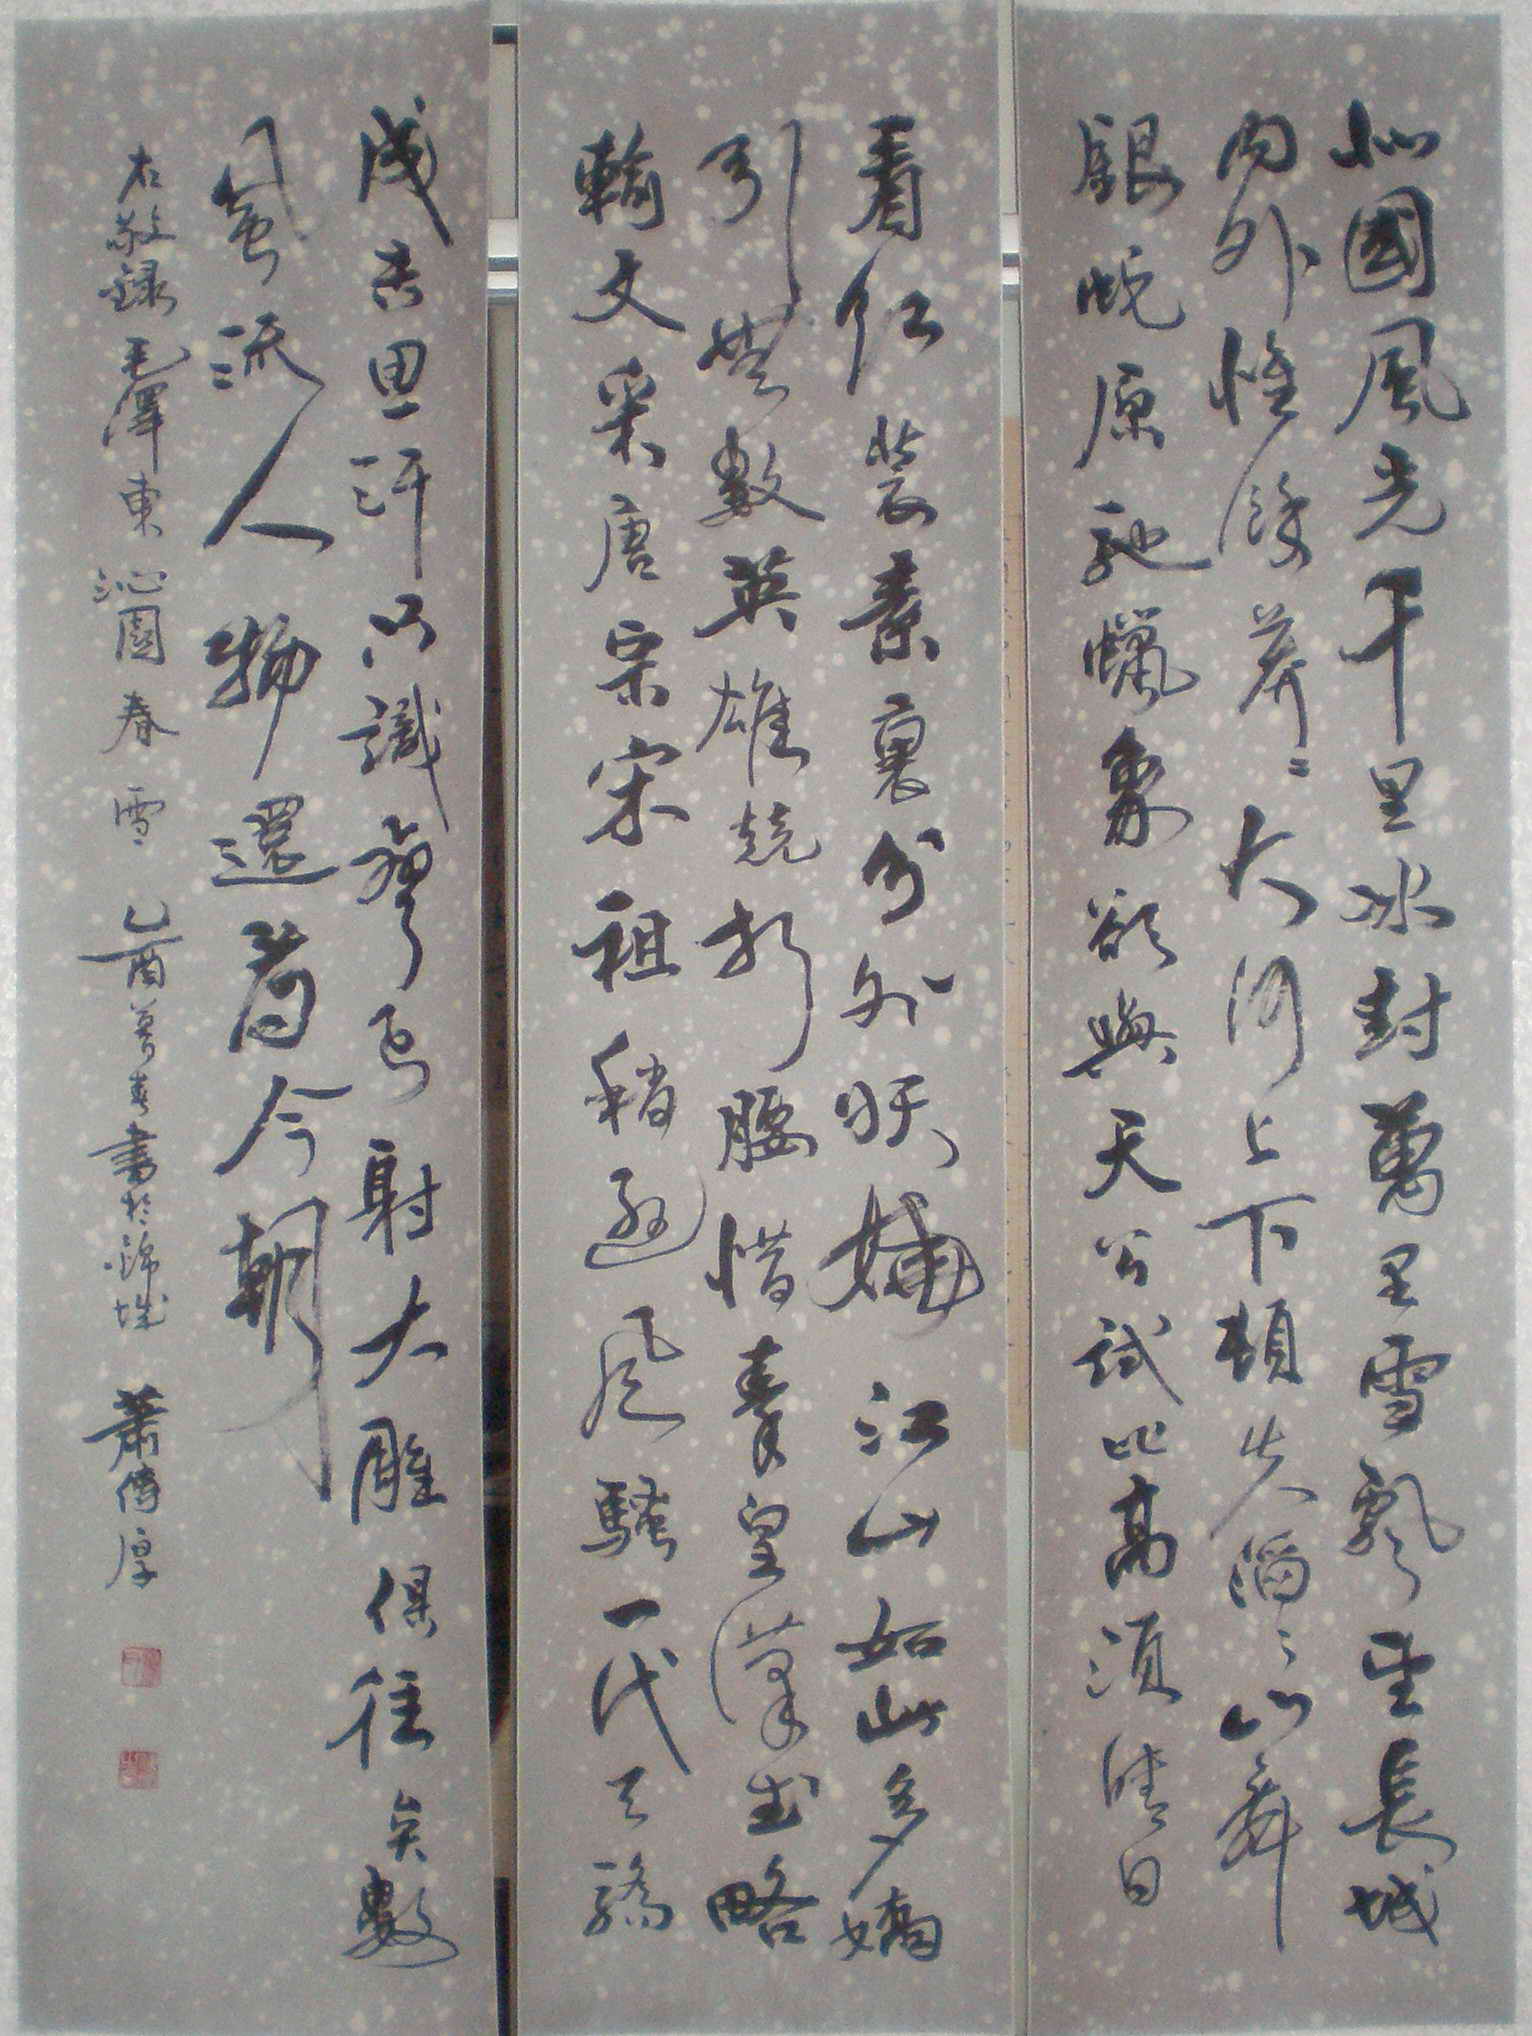 北國風光千里冰封萬里雪飄望長城
內外惟餘莽々大河上下頓失滔々山舞
銀蛇原馳蠟象欲與天公試比高須晴日
看红裝素裹分外妖嬈江山如此多嬌
引無數英雄競折腰惜秦皇漢武略
輸文采唐宗宋祖稍遜風騷一代天驕
成吉思汗只識彎弓射大雕俱往矣數
風流人物還看今朝
右敬錄毛澤東沁園春雪 乙酉暮春書於錦城 蕭傳厚